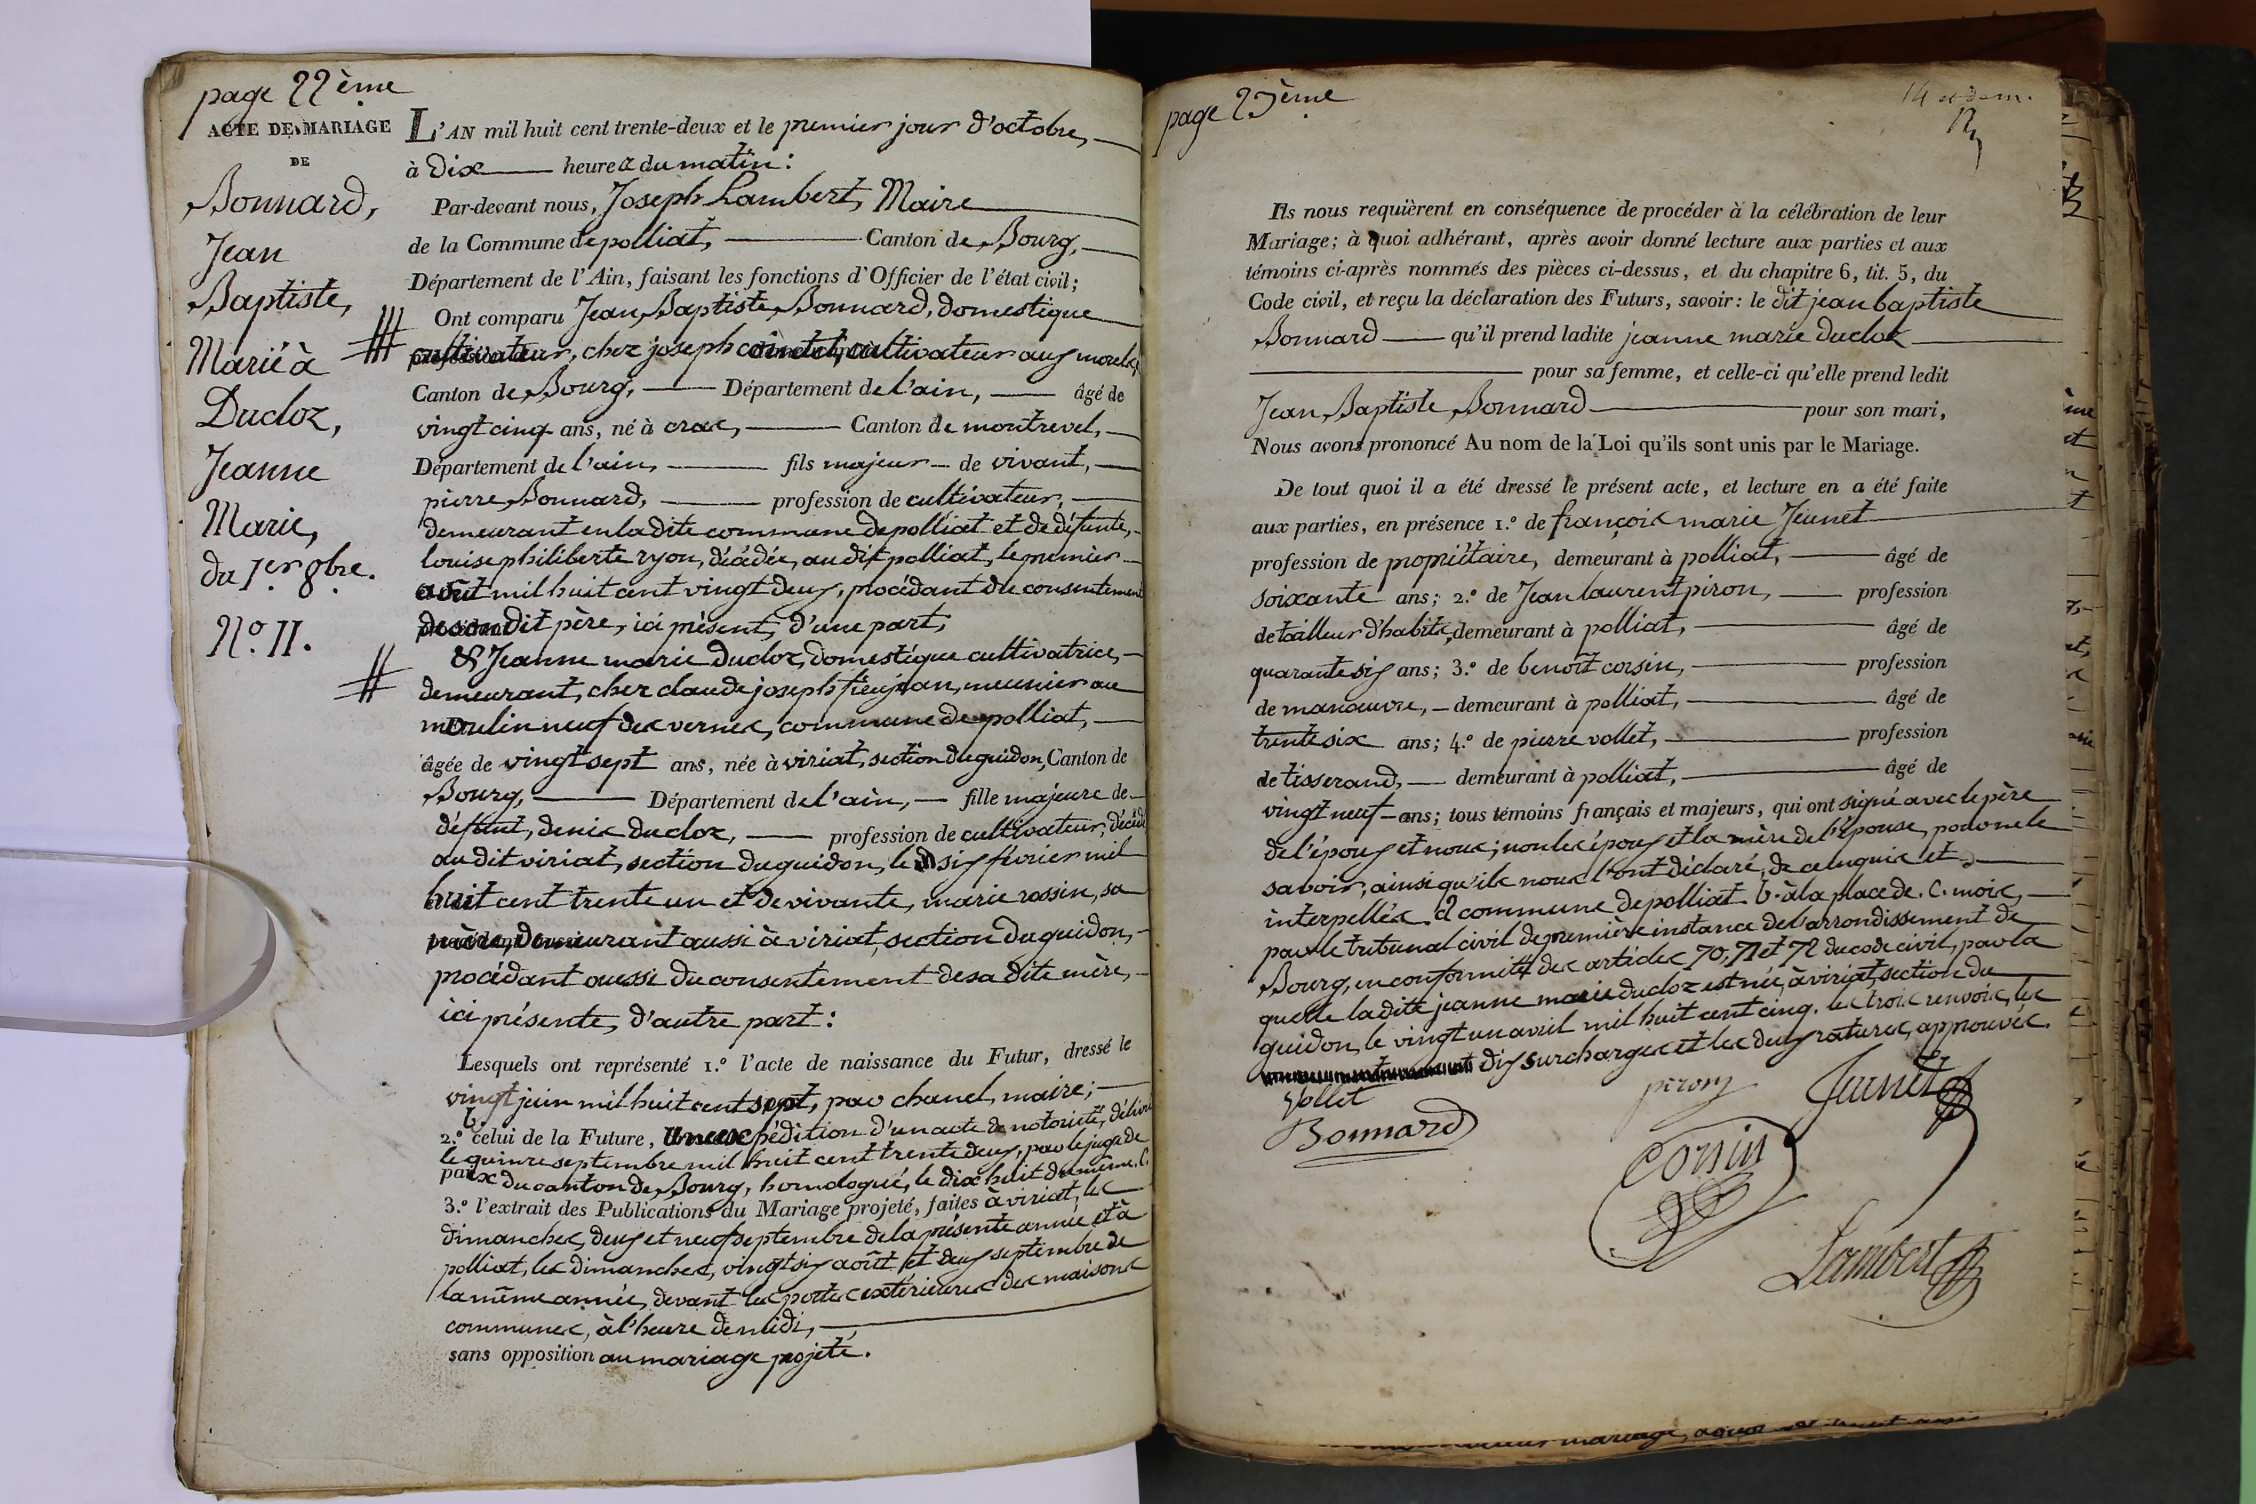 page 22ème
ACTE DE MARIAGE
DE
Bonnard,
Jean
Baptiste,
Marié à
Ducloz,
Jeanne
Marie,
du 1er 8bre.
N.° 11.
L'AN mil huit cent trente-deux et le premier jour d'octobre,
à dix heures du matin :
Par-devant nous, Joseph Lambert, Maire
de la Commune de polliat, Canton de Bourg,
Département de l'Ain, faisant les fonctions d'Officier de l'état civil ;
Ont comparu Jean Baptiste Bonnard, domestique
cultivateur, chez joseph cultivateur aux morels,
Canton de Bourg, Département de l'ain, âgé de
vingt cinq ans, né à cras, Canton de montrevel,
Département de l'ain, fils majeur de vivant,
pierre Bonnard, profession de cultivateur,
demeurant en la dite commune de polliat et de défunte,
louise philiberte ryon, décédée, au dit polliat, le premier
août mil huit cent vingt deux, procédant du consentement
de son dit père, ici présent, d'une part,
& Jeanne marie Ducloz, domestique cultivatrice,
demeurant, chez claude joseph fieujean, meunier au
moulin neuf des vernes, commune de polliat,
âgée de vingt sept ans, née à viriat, section du guidon, Canton de
Bourg, Département de l'ain, fille majeure de
défunt, denis ducloz, profession de cultivateur, décédé
au dit viriat, section du guidon, le six février mil
huit cent trente un et de vivante, marie rossin, sa
mère, demeurant aussi à viriat, section du guidon,
procédant aussi du consentement de sa dite mère,
ici présente, d'autre part :
Lesquels ont représenté 1.° l'acte de naissance du Futur, dressé le
vingt juin mil huit cent sept, par chanel, maire ;
b.
2.° celui de la Future, une expédition d'un acte de notoriété, délivré
le quinze septembre mil huit cent trente deux, par le juge de
paix du canton de Bourg, homologué, le dix huit du même. C.
3.° l'extrait des Publications du Mariage projeté, faites à viriat, les
dimanches, deux et neuf septembre de la présente année et à
polliat, les dimanches, vingt six août et deux septembre de
la même année, devant les portes extérieures des maisons
communes, à l'heure de midi,
sans opposition au mariage projeté.
page 23ème
Ils nous requièrent en conséquence de procéder à la célébration de leur
Mariage ; à quoi adhérant, après avoir donné lecture aux parties et aux
témoins ci-après nommés des pièces ci-dessus, et du chapitre 6, tit. 5, du
Code civil, et reçu la déclaration des Futurs, savoir : le dit jean baptiste
Bonnard qu'il prend ladite jeanne marie ducloz
pour sa femme, et celle-ci qu'elle prend ledit
Jean Baptiste Bonnard pour son mari,
Nous avons prononcé Au nom de la Loi qu'ils sont unis par le Mariage.
De tout quoi il a été dressé le présent acte, et lecture en a été faite
aux parties, en présence 1.° de françois marie Jeunet
profession de propriétaire, demeurant à polliat, âgé de
soixante ans ; 2.° de Jean laurent piron, profession
de tailleur d'habits, demeurant à polliat, âgé de
quarante six ans ; 3.° de benoît corsin, profession
de manœuvre, demeurant à polliat, âgé de
trente six ans ; 4.° de pierre vollet, profession
de tisserand, demeurant à polliat, âgé de
vingt neuf ans ; tous témoins français et majeurs, qui ont signé avec le père
de l'époux et nous ; non les époux et la mère de l'épouse, pour ne le
savoir, ainsi qu'ils nous l'ont déclaré, de ce enquis et
interpellés. a commune de polliat. b. à la place de. C. mois,
par le tribunal civil de première instance de l'arrondissement de
Bourg, en conformité des articles 70, 71 et 72 du code civil, par la
quelle la dite jeanne marie ducloz est née, à viriat, section du
guidon, le vingt un avril mil huit cent cinq. les trois renvois, les
dix surcharges et les deux ratures, approuvés.
Vollet
piron
Jeunet
Bonnard
Corsin
Lambert